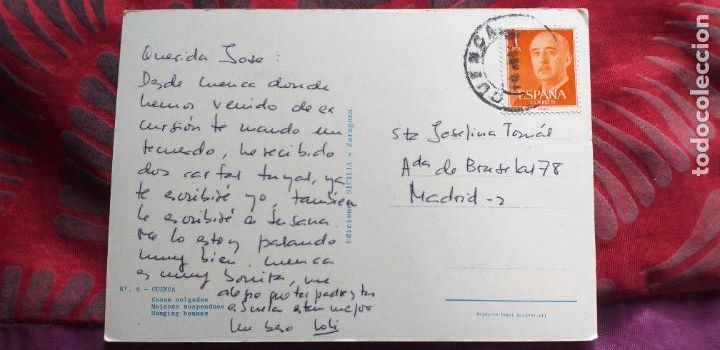 Querida Jose:
Desde cuenca donde
hemos venido de ex
cursión te mando un
recuerdo, he recibido
dos cartas tuyas, ya
te escribiré yo, tambien
le escribiré a Susana
Me lo estoy pasando
muy bien. cuenca
es muy bonita, me
alegro que tus padres y tu
abuela esten mejor
Un beso Loli
Nº. 6 - CUENCA
Casas colgadas
Maisons suspendues
Hanging houses
Ediciones SICILIA - Zaragoza
CUENCA
ESPAÑA
CORREOS
Sta Joselina Tomás
Ada de Bruselas 78
Madrid-2
todocoleccion
todocoleccion.net